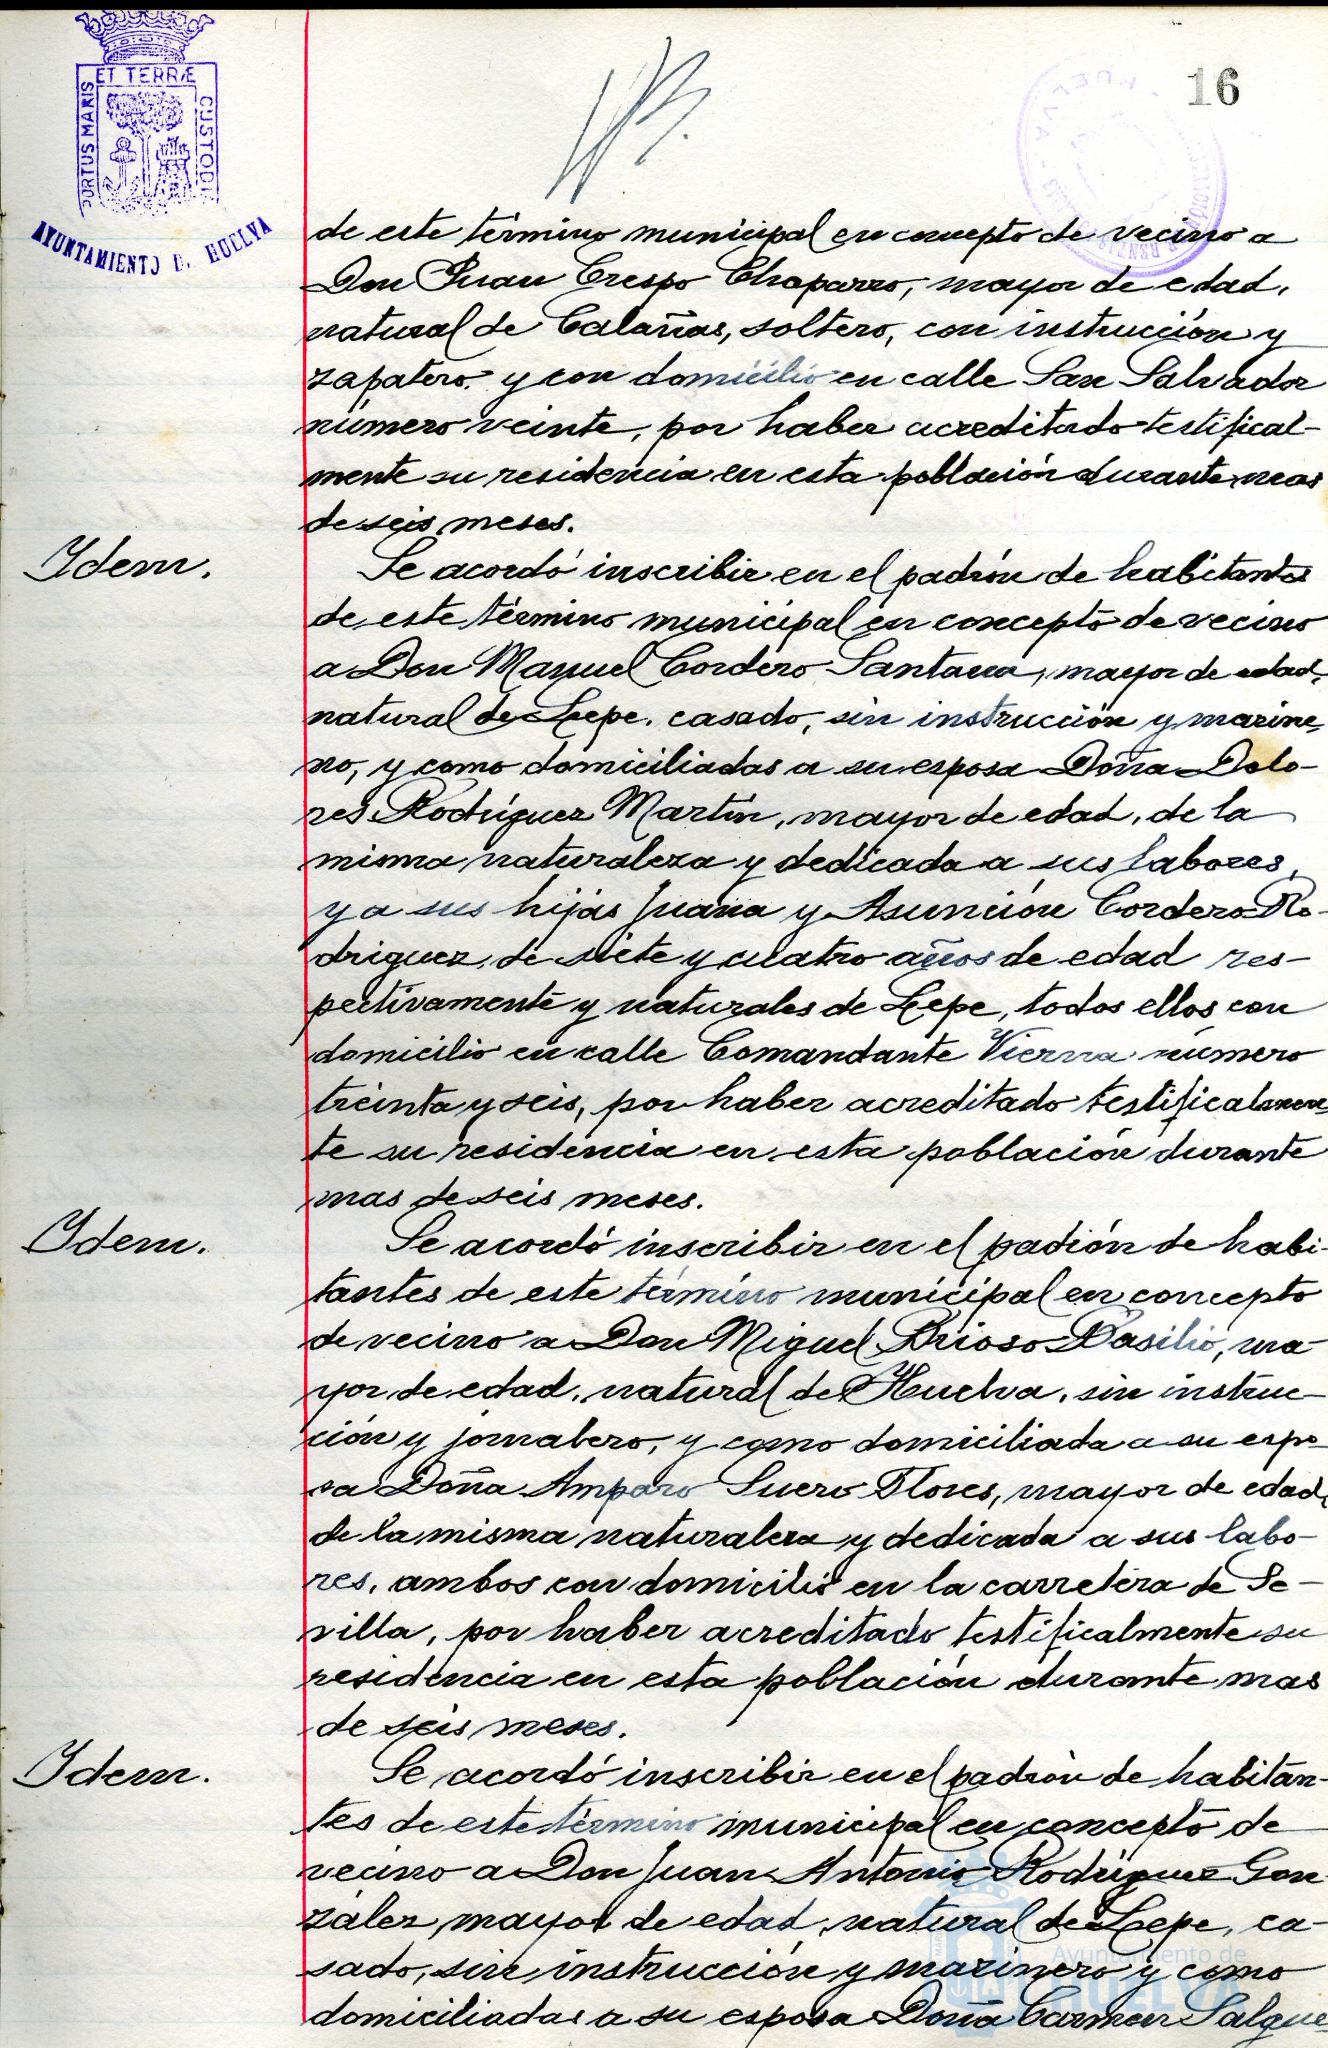 ET TERRÆ
PORTUS MARIS
CUSTODI
AYUNTAMIENTO D. HUELVA
HUELVA
16
de este término municipal en concepto de vecino a
Don Juan Crespo Chaparro, mayor de edad,
natural de Calañas, soltero, con instrucción y
zapatero y con domicilio en calle San Salvador
número veinte, por haber acreditado testifical-
mente su residencia en esta población durante mas
de seis meses.
Idem.
Se acordó inscribir en el padrón de habitantes
de este término municipal en concepto de vecino
a Don Manuel Cordero Santana, mayor de edad,
natural de Lepe, casado, sin instrucción y marine-
ro, y como domiciliadas a su esposa Doña Dolo-
res Rodríguez Martín, mayor de edad, de la
misma naturaleza y dedicada a sus labores,
y a sus hijas Juana y Asunción Cordero Ro-
driguez, de siete y cuatro años de edad res-
pectivamente y naturales de Lepe, todos ellos con
domicilio en calle Comandante Vierna número
treinta y seis, por haber acreditado testificalmen-
te su residencia en esta población durante
mas de seis meses.
Idem.
Se acordó inscribir en el padrón de habi-
tantes de este término municipal en concepto
de vecino a Don Miguel Brioso Basilio, ma-
yor de edad, natural de Huelva, sin instruc-
ción y jornalero, y como domiciliada a su espo-
sa Doña Amparo Suero Flores, mayor de edad,
de la misma naturaleza y dedicada a sus labo-
res, ambos con domicilio en la carretera de Se-
villa, por haber acreditado testificalmente su
residencia en esta población durante mas
de seis meses.
Idem.
Se acordó inscribir en el padrón de habitan-
tes de este término municipal en concepto de
vecino a Don Juan Antonio Rodríguez Gon-
zález, mayor de edad, natural de Lepe, ca-
sado, sin instrucción y marinero y como
domiciliadas a su esposa Doña Carmen Salgue-
Ayuntamiento de
HUELVA